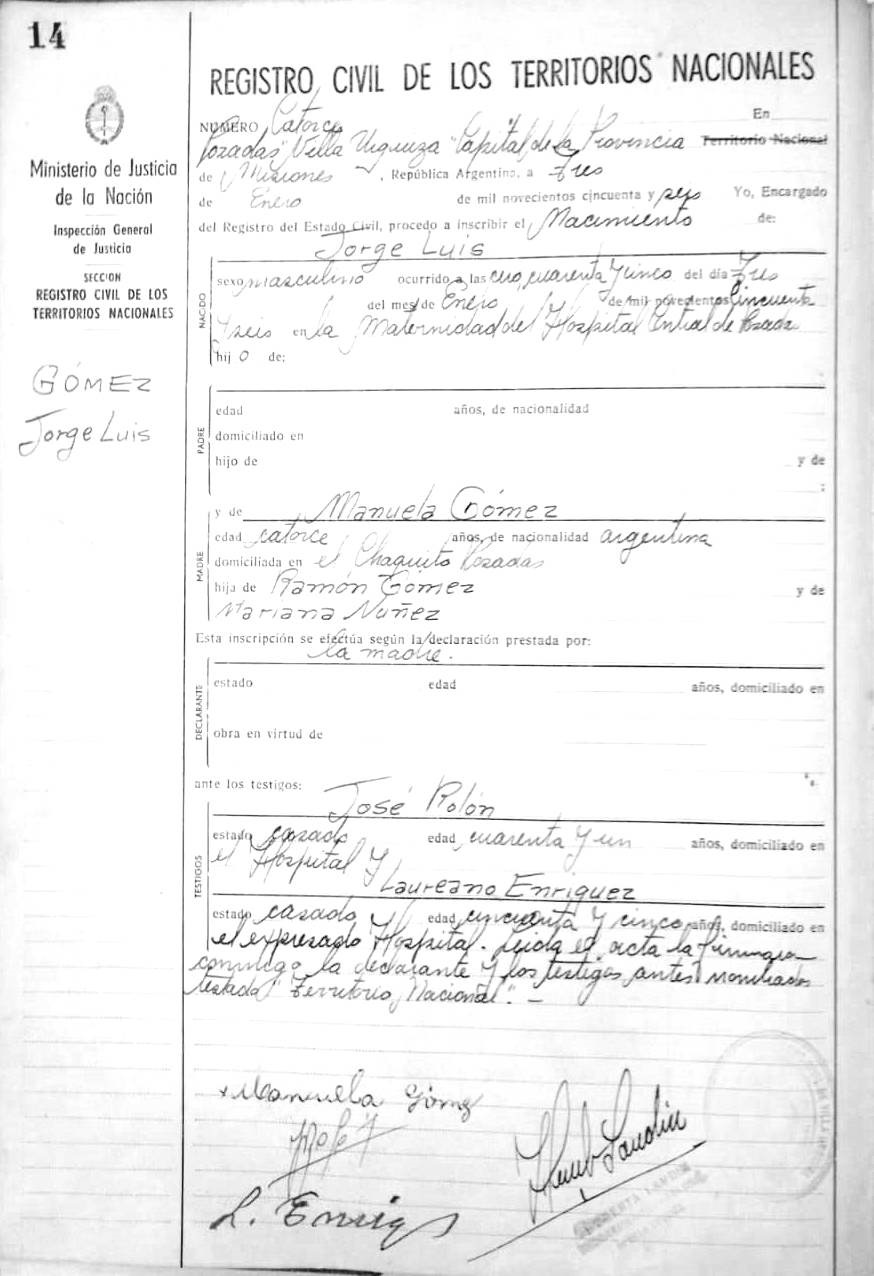 14
Ministerio de Justicia
de la Nación
Inspección General
de Justicia
SECCION
REGISTRO CIVIL DE LOS
TERRITORIOS NACIONALES
GÓMEZ
Jorge Luis
REGISTRO CIVIL DE LOS TERRITORIOS NACIONALES
NUMERO Catorce En
Posadas "Villa Urquiza" Capital de la Provincia Territorio Nacional
de Misiones, República Argentina, a Tres
de Enero de mil novecientos cincuenta y seis Yo, Encargado
del Registro del Estado Civil, procedo a inscribir el Nacimiento de:
Jorge Luis
NACIDO
sexo masculino ocurrido a las cero, cuarenta y cinco del día Tres
del mes de Enero de mil novecientos Cincuenta
y seis en la Maternidad del Hospital Central de Posadas
hij o de:
PADRE
edad años, de nacionalidad
domiciliado en
hijo de y de
:
MADRE
y de Manuela Gómez
edad catorce años, de nacionalidad argentina
domiciliada en el Chaquito Posadas
hija de Ramón Gómez y de
Mariana Nuñez
Esta inscripción se efectúa según la declaración prestada por:
la madre.
DECLARANTE
estado edad años, domiciliado en
obra en virtud de
ante los testigos: José Rolón
TESTIGOS
estado casado edad cuarenta y un años, domiciliado en
el Hospital y
Laureano Enriquez
estado casado edad cincuenta y cinco años, domiciliado en
el expresado Hospital. Leida el acta la firmaron
conmigo la declarante y los testigos antes nombrados
testado "Territorio Nacional". —
x Manuela Gómez
L. Enriq